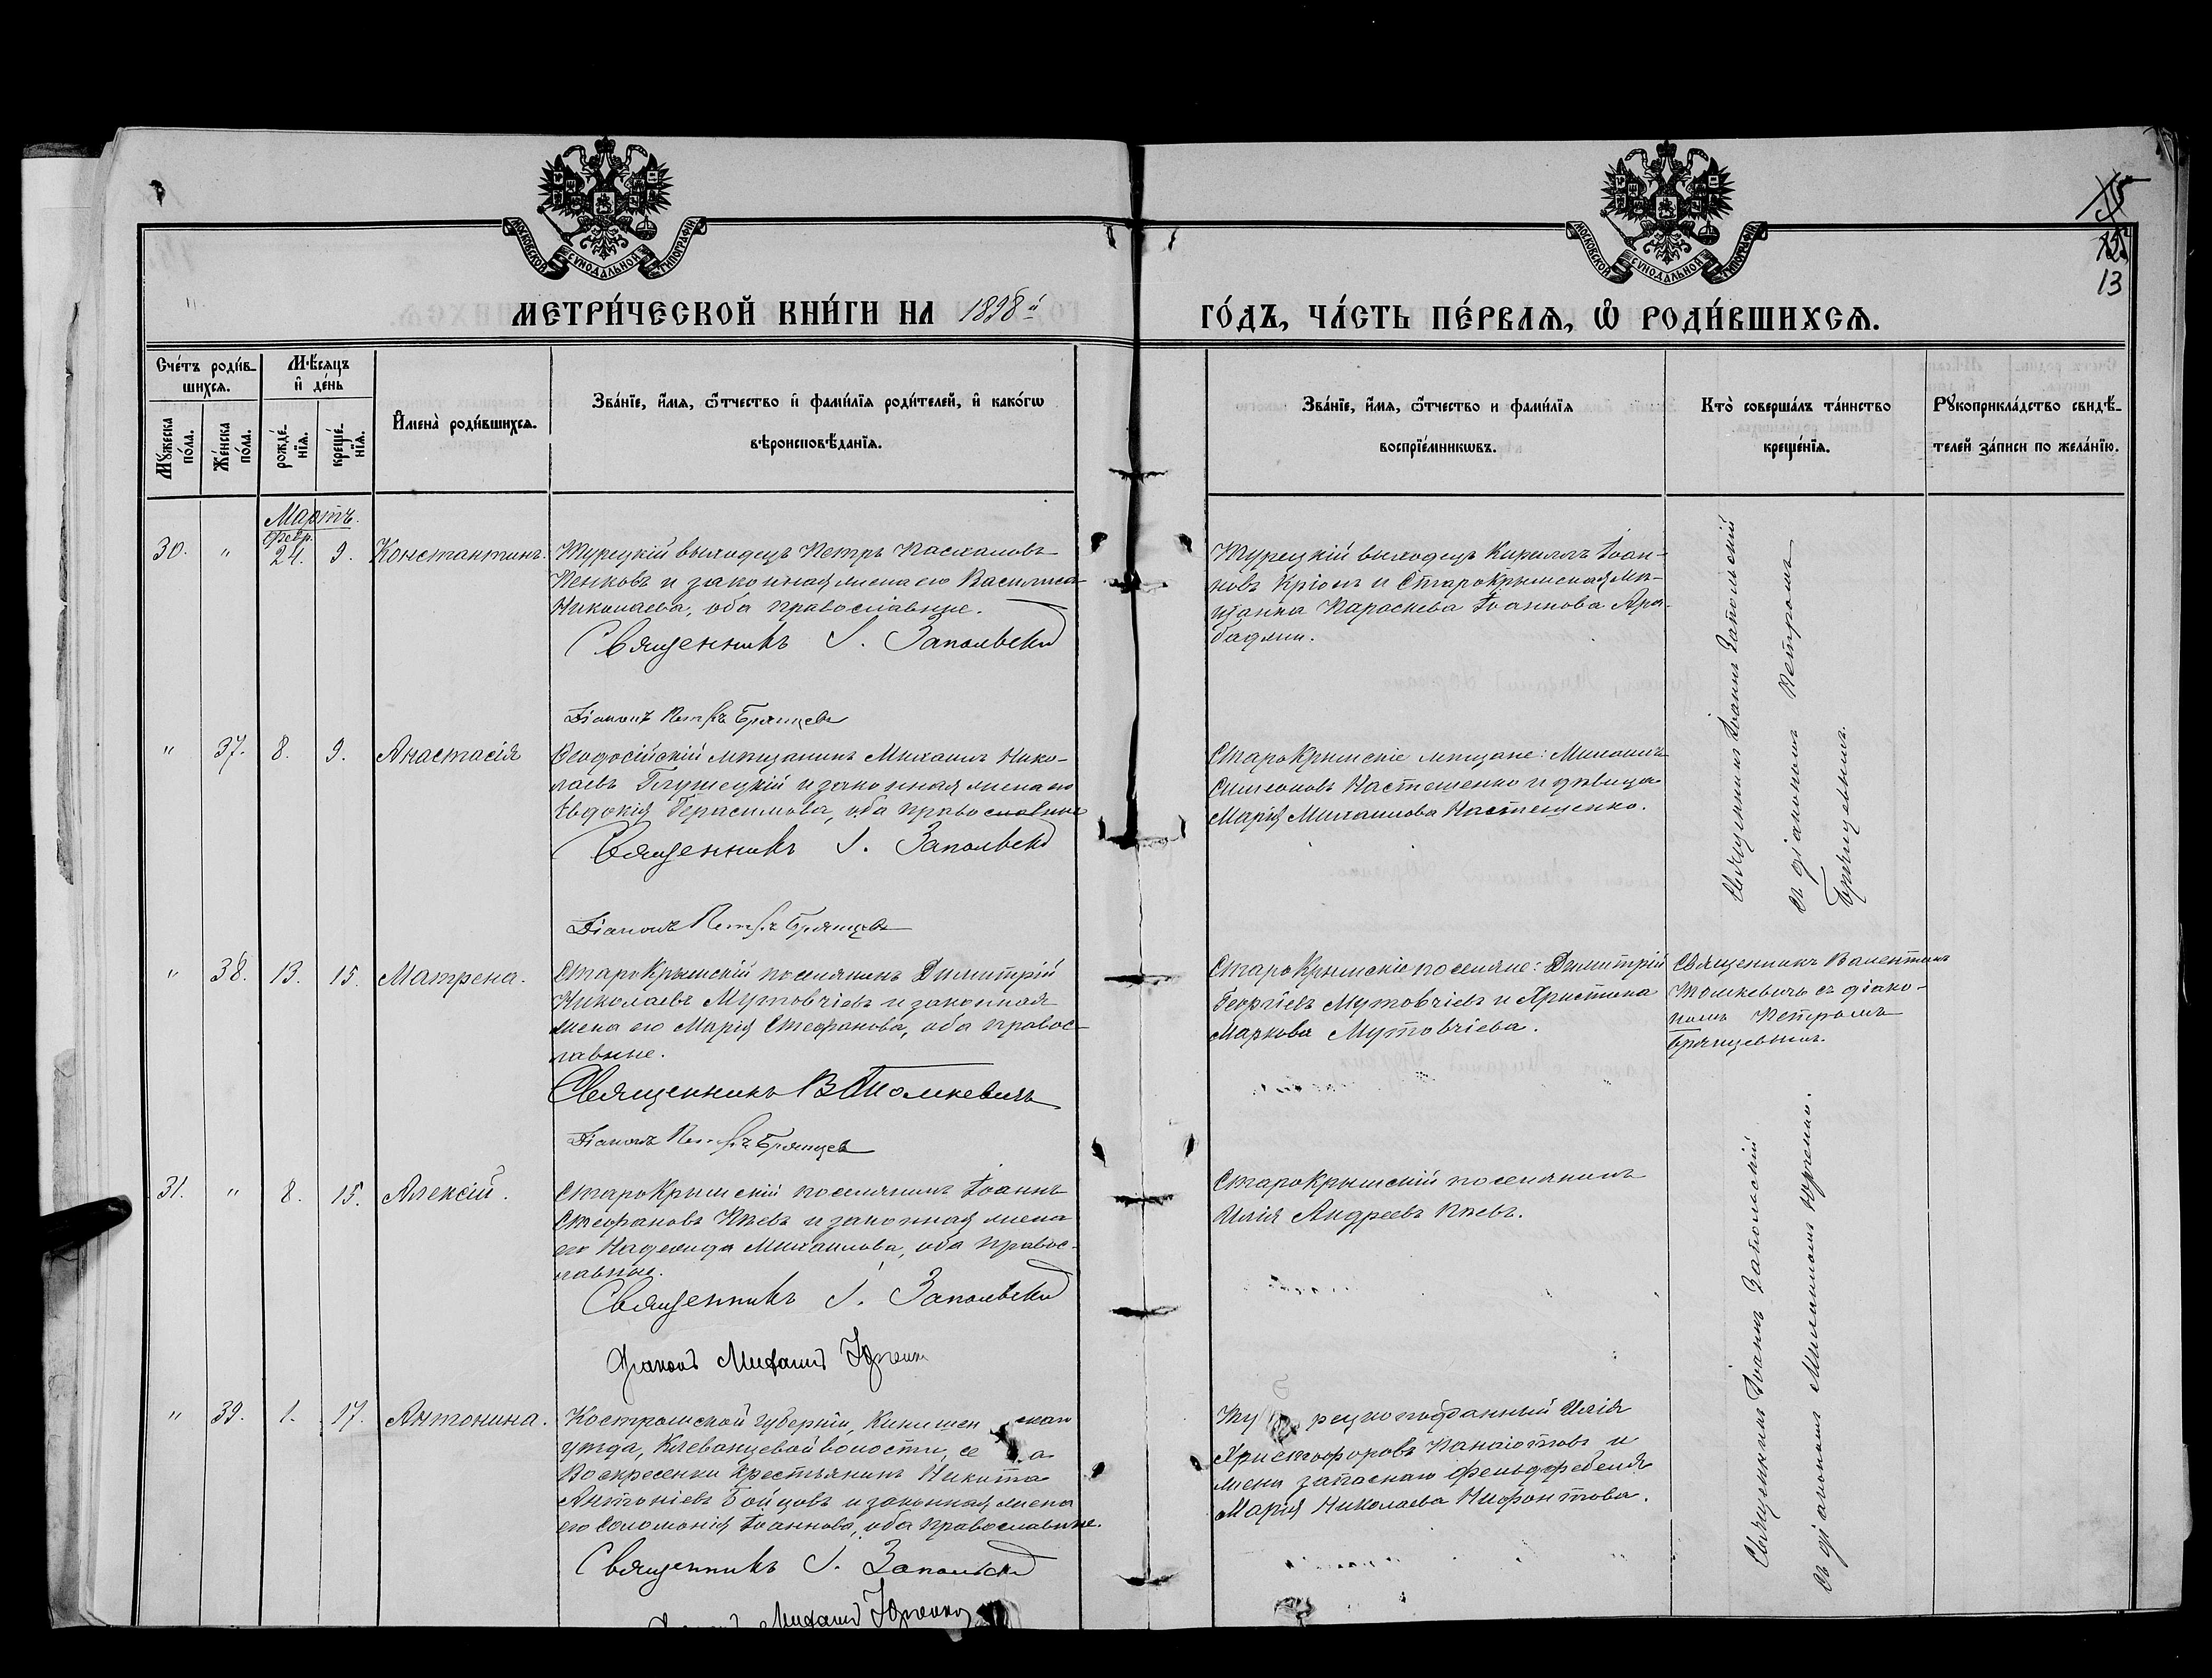 15
125
13
МОСКОВСКОЙ СѴНОДАЛЬНОЙ ТИПОГРАФІИ
МОСКОВСКОЙ СѴНОДАЛЬНОЙ ТИПОГРАФІИ
МЕТРИ́ЧЕСКОЙ КНИ́ГИ НА 1898й
ГО́ДЪ, ЧА́СТЬ ПЕ́РВАѦ, Ѡ҆ РОДИ́ВШИХСѦ.
Сче́тъ роди́в-
шихсѧ.
Мꙋ́жеска по́ла.
Же́нска по́ла.
Мѣ́сѧцъ
и҆ де́нь
рожде́-
нїѧ.
креще́-
нїѧ.
И҆мена̀ роди́вшихсѧ.
Зва́нїе, и҆́мѧ, ѻ҆́тчество и҆ фами́лїѧ роди́телей, и҆ како́гѡ
вѣроисповѣ́данїѧ.
Зва́нїе, и҆́мѧ, ѻ҆́тчество и фами́лїѧ
воспрїе́мникѡвъ.
Кто̀ соверша́лъ та́инство
креще́нїѧ.
Рꙋкоприкла́дство свидѣ́-
телей за́писи по жела́нїю.
Мартъ.
Февр.
30. " 24. 9. Константинъ.
Турецкій выходецъ Петръ Пасхаловъ
Пенковъ и законная жена его Василиса
Николаева, оба православные.
Священникъ І. Запольскій
Діаконъ Петръ Брянцевъ
Турецкій выходецъ Кириллъ Іоан-
новъ Кріонъ и Старокрымская мѣ-
щанка Параскева Іоаннова Ара-
баджи.
Священникъ Іоаннъ Запольскій
съ діакономъ Петромъ
Брянцевымъ.
" 37. 8. 9. Анастасія
Ѳеодосійскій мѣщанинъ Михаилъ Нико-
лаевъ Глушецкій и законная жена его
Евдокія Герасимова, оба православные
Священникъ І. Запольскій
Діаконъ Петръ Брянцевъ
СтароКрымскіе мѣщане: Михаилъ
Симеоновъ Настешенко и дѣвица
Марія Михаилова Настешенко.
" 38. 13. 15. Матрена.
СтароКрымскій поселянинъ Димитрій
Николаевъ Мутовчіевъ и законная
жена его Марія Стефанова, оба правос-
лавные.
Священникъ В Томкевичъ
Діаконъ Петръ Брянцевъ
СтароКрымскіе поселяне: Димитрій
Георгіевъ Мутовчіевъ и Христина
Маркова Мутовчіева.
Священникъ Валентинъ
Томкевичъ съ діако-
номъ Петромъ
Брянцевымъ.
31. " 8. 15. Алексій.
СтароКрымскій поселянинъ Іоаннъ
Стефановъ Кѣевъ и законная жена
его Надежда Михаилова, оба правос-
лавные.
Священникъ І. Запольскій
Діаконъ Михаилъ Юрченко
СтароКрымскій поселянинъ
Илія Андреевъ Кѣевъ.
Священникъ Іоаннъ Запольскій
съ діакономъ Михаиломъ Юрченко.
" 39. 1. 17. Антонина.
Костромской губерніи, Кинешем скаго
уѣзда, Клеванцевой волости, се ла
Воскресенки крестьянинъ Никита
Антоніевъ Бойцовъ и законная жена
его Соломонія Іоаннова, оба православные.
Священникъ І. Запольскій
Діаконъ Михаилъ Юрченко
Ту рецко подданный Илія
Христофоровъ Панаіотовъ и
жена запаснаго фельдфебеля
Марія Николаева Нифонтова.